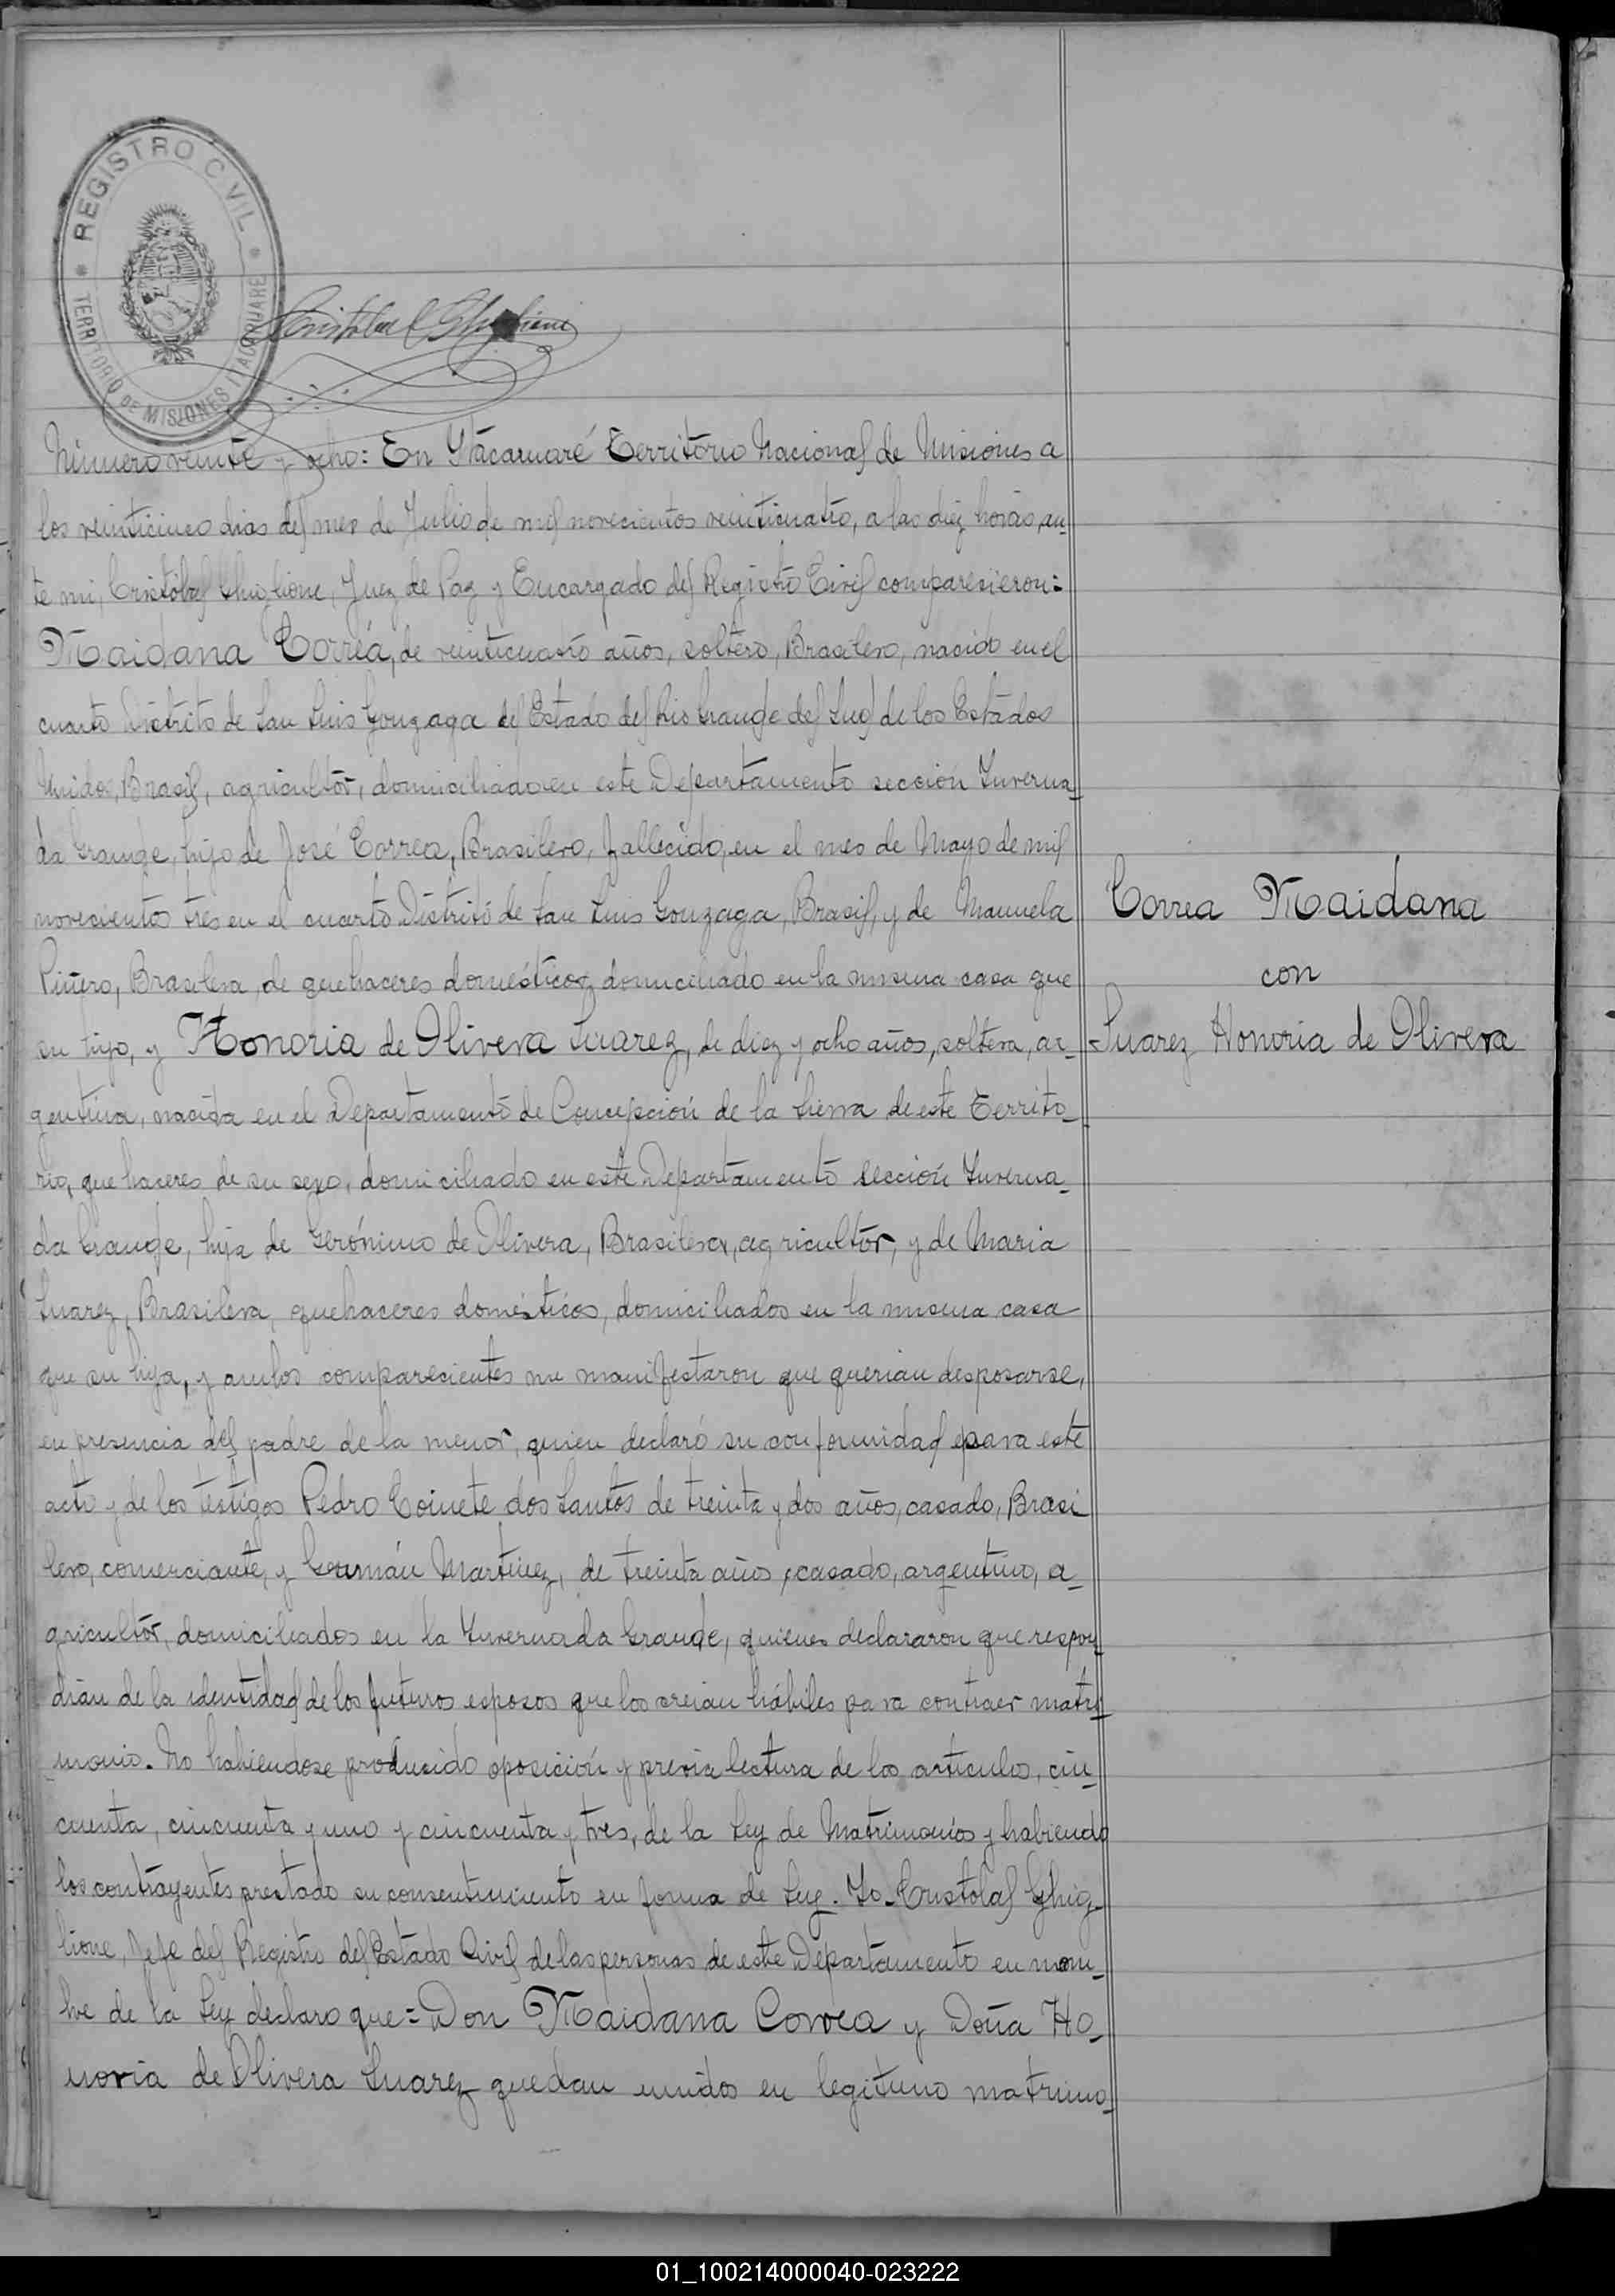 REGISTRO CIVIL
TERRITORIO DE MISIONES ITACARUARE
Cristobal Ghiglione
Número veinte y ocho: En Ytacaruaré Territorio Nacional de Misiones a
los veinticinco dias del mes de Julio de mil novecientos veinticuatro, a las diez horas, an-
te mi, Cristóbal Ghiglione, Juez de Paz y Encargado del Registro Civil comparesieron:
Maidana Correa, de veinticuatro años, soltero, Brasilero, nacido en el
cuarto Distrito de San Luis Gonzaga del Estado del Rio Grande del Sud de los Estados
Unidos, Brasil, agricultor, domiciliado en este Departamento sección Inverna-
da Grande, hijo de José Correa, Brasilero, fallecido, en el mes de Mayo de mil
novecientos tres en el cuarto Distrito de San Luis Gonzaga, Brasil, y de Manuela
Piñero, Brasilera, de quehaceres domésticos domiciliado en la misma casa que
su hijo, y Honoria de Olivera Suarez, de diez y ocho años, soltera, ar-
gentina, nacida en el Departamento de Concepción de la Sierra de este Territo-
rio, que haceres de su sexo, domiciliado en este Departamento sección Inverna-
da Grande, hija de Gerónimo de Olivera, Brasilero, agricultor, y de Maria
Suarez, Brasilera, quehaceres domésticos, domiciliados en la misma casa
que su hija, y ambos comparecientes me manifestaron que querian desposarse,
en presencia del padre de la menor, quien declaró su conformidad para este
acto y de los testigos Pedro Coinete dos Santos de treinta y dos años, casado, Brasi
lero, comerciante, y Germán Martinez, de treinta años, casado, argentino, a-
gricultor, domiciliados en la Invernada Grande, quienes declararon que respon-
dian de la identidad de los futuros esposos que los creian hábiles para contraer matri-
monio. No habiendose producido oposición y previa lectura de los articulos, cin-
cuenta, cincuenta y uno y cincuenta y tres, de la Ley de Matrimonios y habiendo
los contrayentes prestado su consentimiento en forma de Ley. Yo Cristobal Ghig-
lione, Jefe del Registro del Estado Civil de las personas de este Departamento en nom-
bre de la Ley declaro que: Don Maidana Correa y Doña Ho-
noria de Olivera Suarez quedan unidos en legitimo matrimo-
Correa Maidana
con
Suarez Honoria de Olivera
01_100214000040-023222